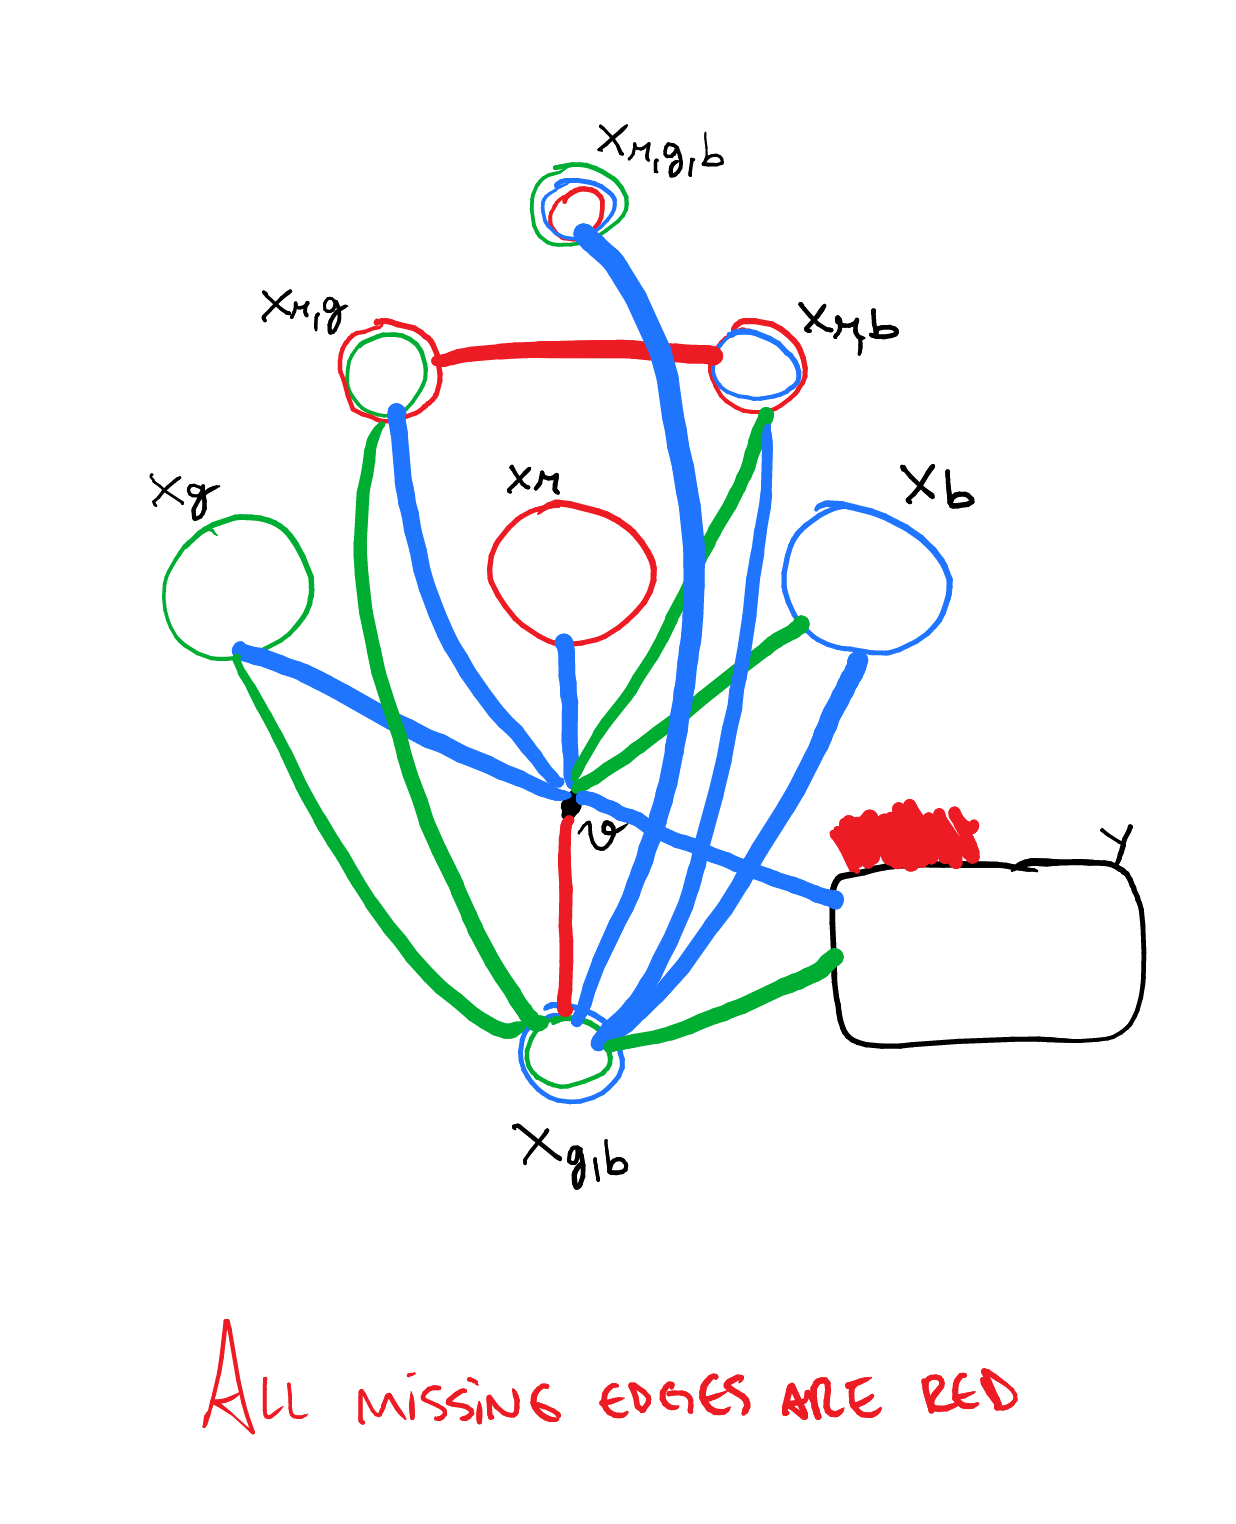 Xr,g,b
Xr,g
Xr,b
Xg
Xr
Xb
v
Y
Xg,b
ALL MISSING EDGES ARE RED